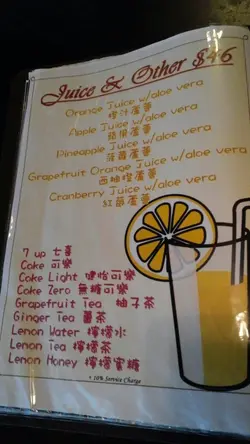 Juice & Other $46
Orange Juice w/aloe vera
橙汁蘆薈
Apple Juice w/aloe vera
蘋果蘆薈
Pineapple Juice w/aloe vera
菠蘿蘆薈
Grapefruit Orange Juice w/aloe vera
西柚橙蘆薈
Cranberry Juice w/aloe vera
紅莓蘆薈
7 up 七喜
Coke 可樂
Coke Light 健怡可樂
Coke Zero 無糖可樂
Grapefruit Tea 柚子茶
Ginger Tea 薑茶
Lenon Water 檸檬水
Lenon Tea 檸檬茶
Lenon Honey 檸檬蜜糖
+ 10% Service Charge